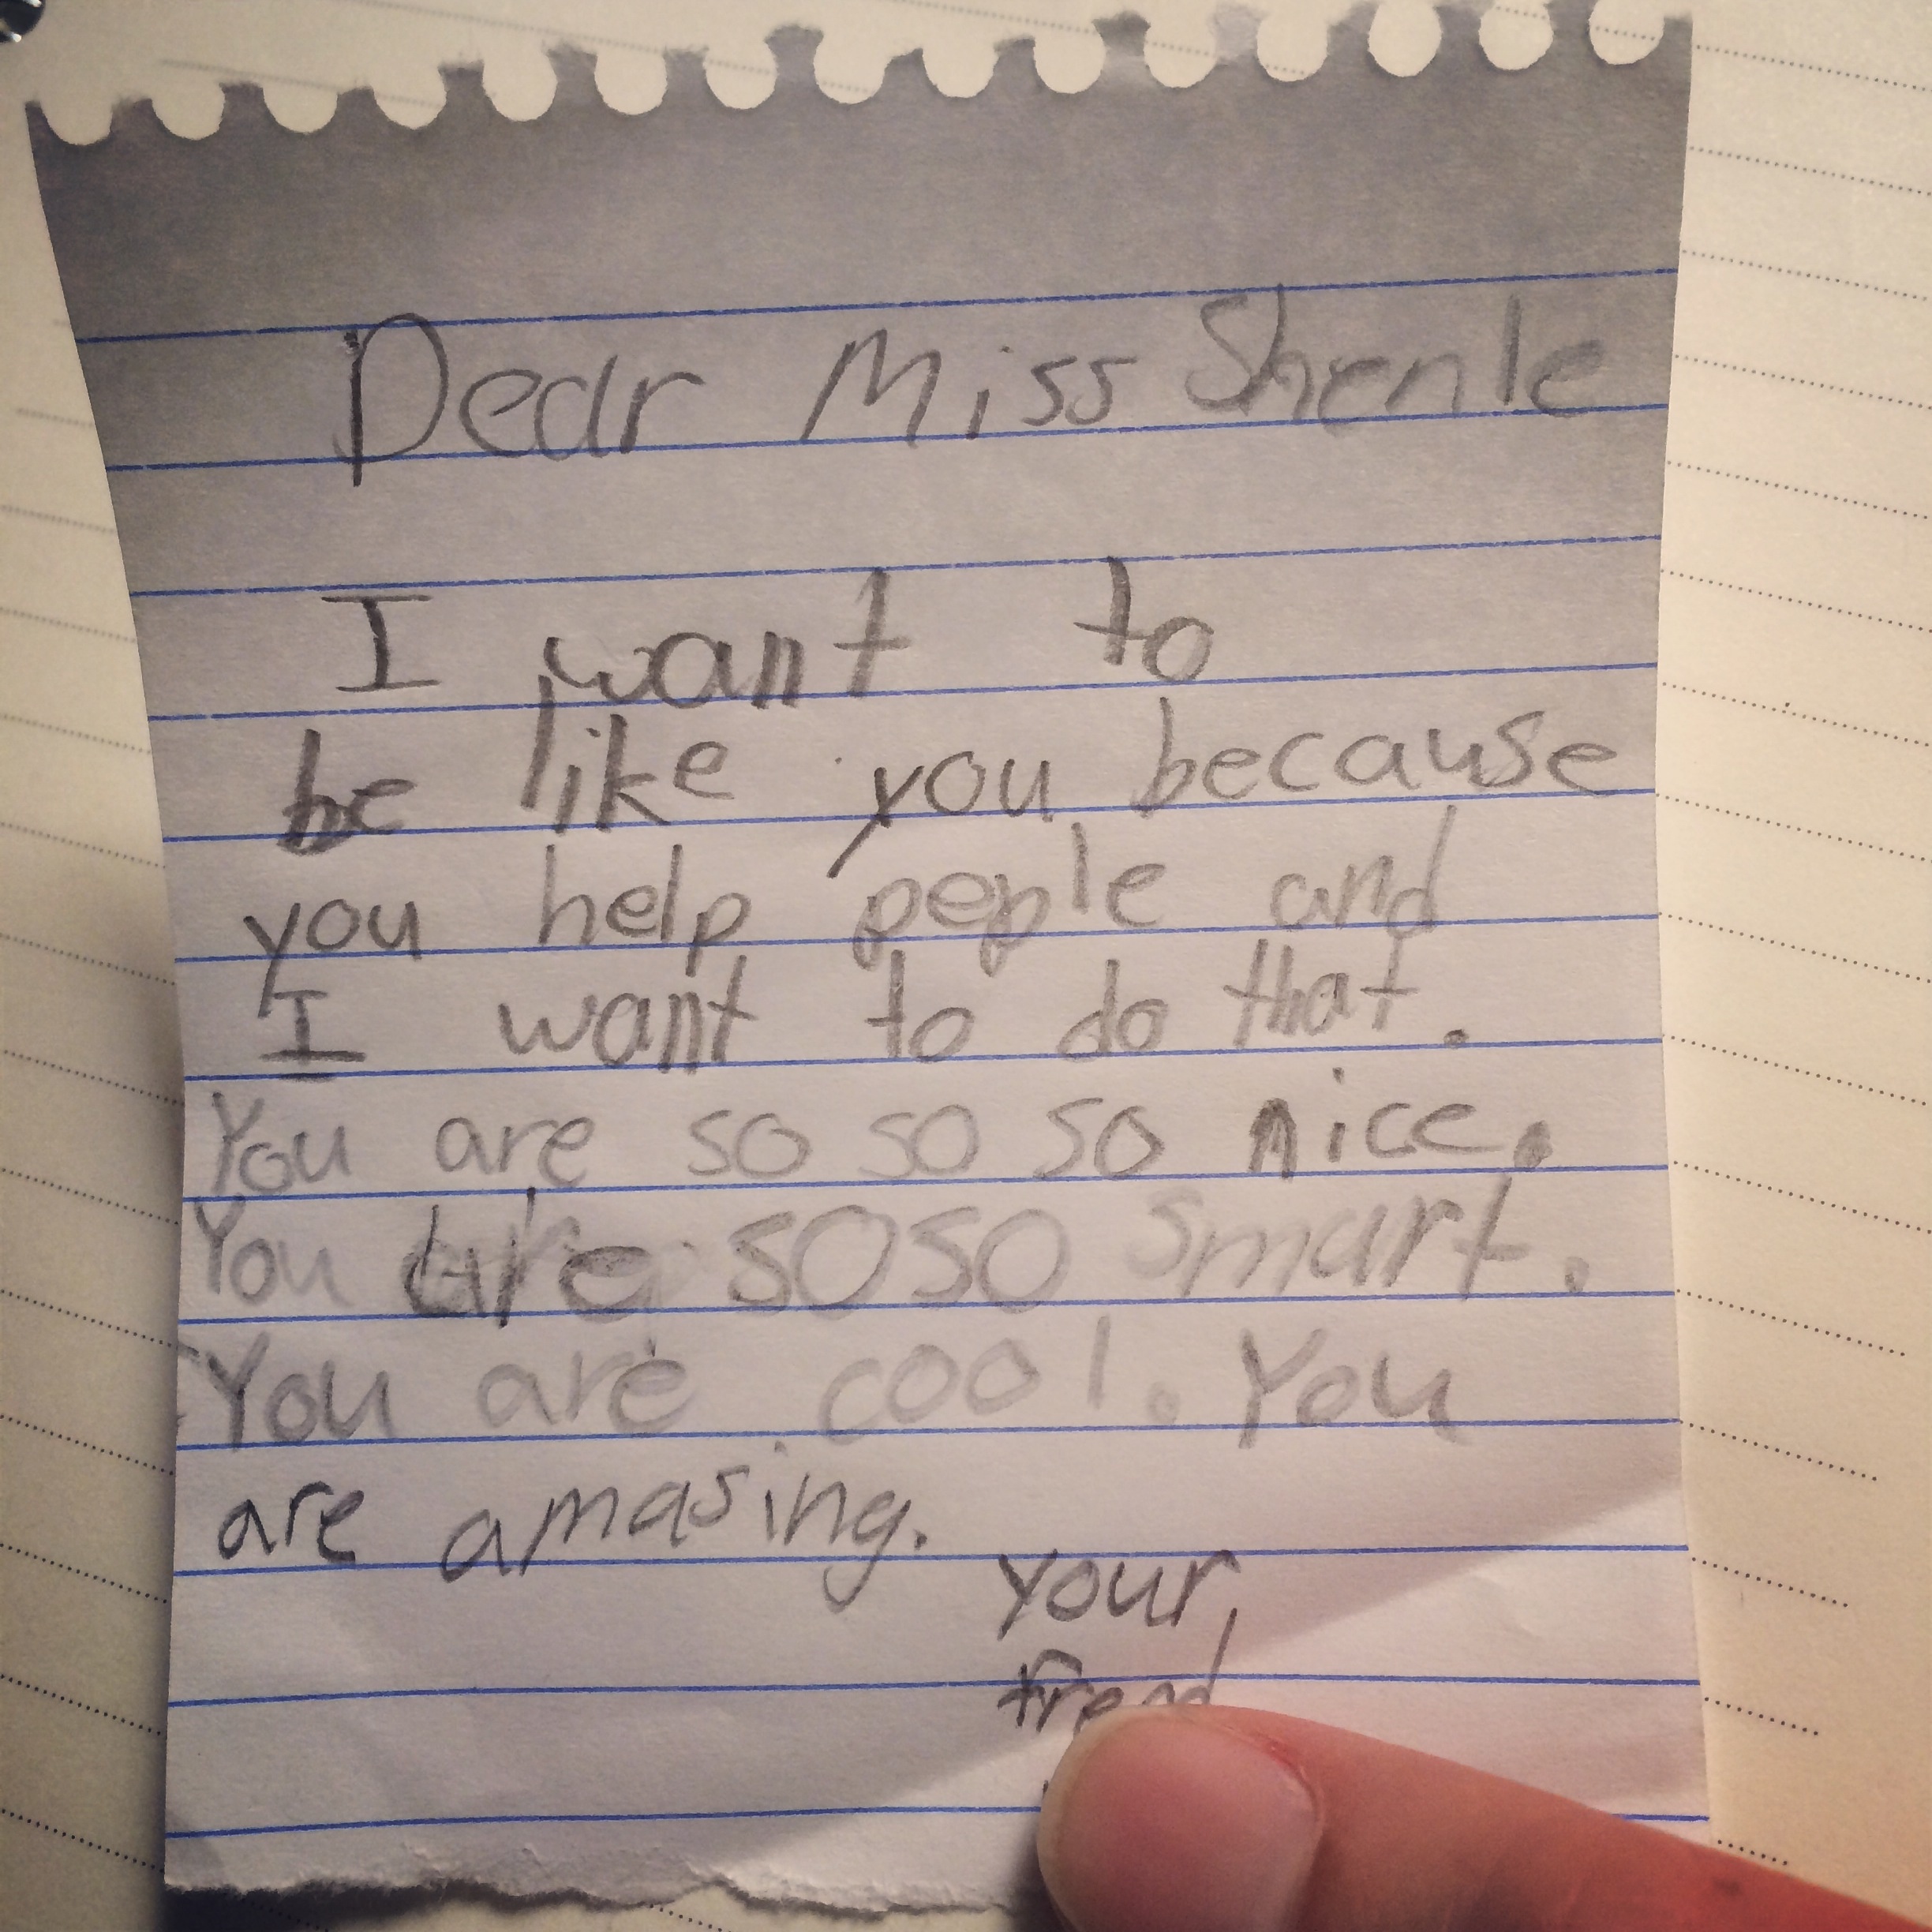 Dear Miss Shenle
I want to
be like you because
you help pepple and
I want to do that.
You are so so so nice.
You are SOSO smart.
You are cool. You
are amasing.
your
frend